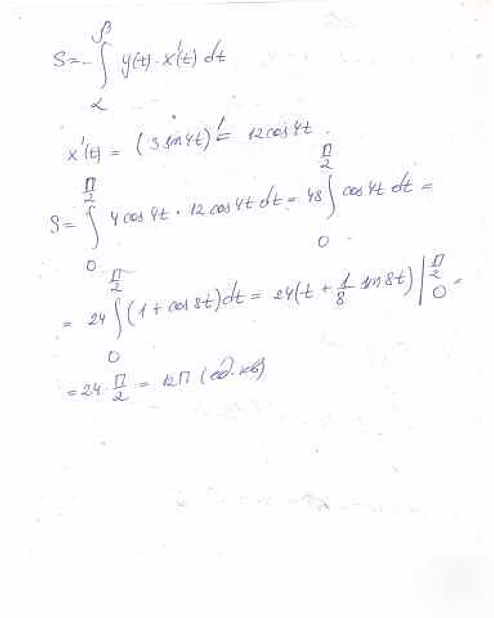 S = - ∫_α^β y(t) · x'(t) dt
x'(t) = (3 sin 4t)' = 12 cos 4t.
S = ∫_0^{π/2} 4 cos 4t · 12 cos 4t dt = 48 ∫_0^{π/2} cos 4t dt =
= 24 ∫_0^{π/2} (1 + cos 8t) dt = 24(t + 1/8 sin 8t) |_0^{π/2} =
= 24 · π/2 = 12π (ед. кв)